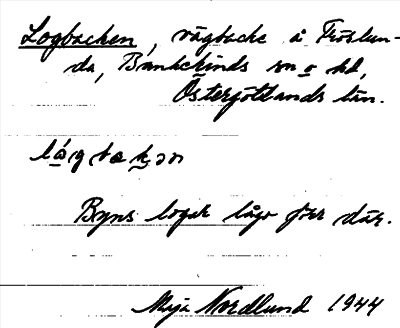 Logbacken, vägbacke å Fröslun-
da, Bankekinds sn o hd,
Östergötlands län.
lágbakən
Byns logar lågo förr där.
Maja Nordlund 1944